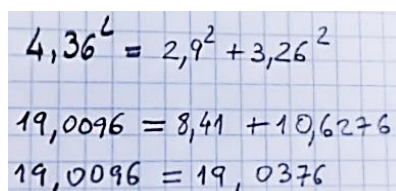 4,36² = 2,9² + 3,26²
19,0096 = 8,41 + 10,6276
19,0096 = 19,0376